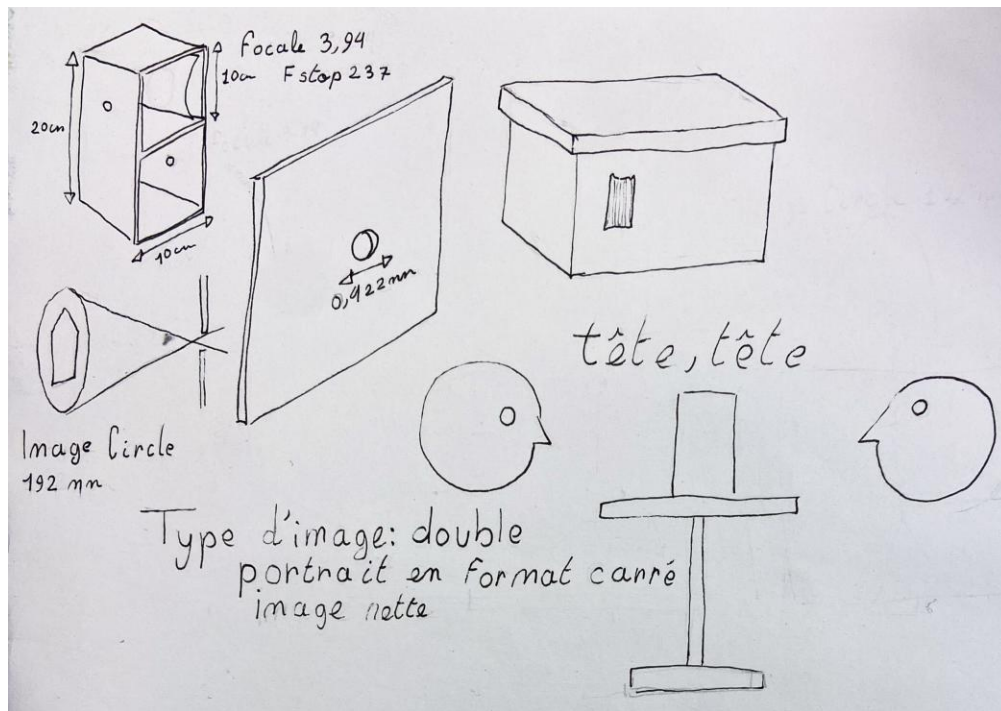 Focale 3,94
10cm Fstop 237
20cm
10cm
0,422 mm
tête, tête
Image Circle
192 mm
Type d'image: double
portrait en format carré
image nette